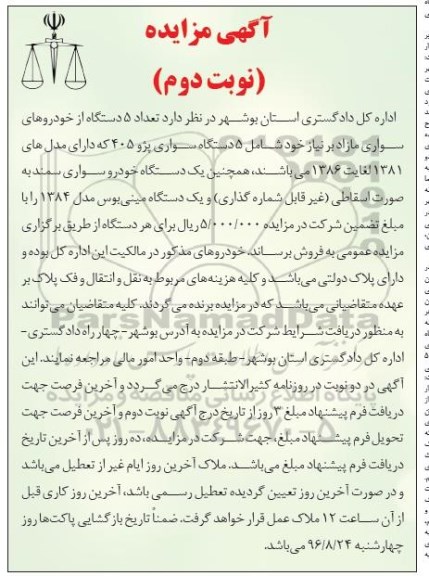 آگهی مزایده
(نوبت دوم)
اداره کل دادگستری استان بوشهر در نظر دارد تعداد ۵ دستگاه از خودروهای
سواری مازاد بر نیاز خود شامل ۵ دستگاه سواری پژو ۴۰۵ که دارای مدل های
۱۳۸۱ لغایت ۱۳۸۶ می باشند، همچنین یک دستگاه خودرو سواری سمند به
صورت اسقاطی (غیر قابل شماره گذاری) و یک دستگاه مینی‌بوس مدل ۱۳۸۴ را با
مبلغ تضمین شرکت در مزایده ۵/۰۰۰/۰۰۰ ریال برای هر دستگاه از طریق برگزاری
مزایده عمومی به فروش برساند. خودروهای مذکور در مالکیت این اداره کل بوده و
دارای پلاک دولتی می‌باشند و کلیه هزینه‌های مربوط به نقل و انتقال و فک پلاک بر
عهده متقاضیانی می‌باشد که در مزایده برنده می‌گردند. کلیه متقاضیان می‌توانند
به منظور دریافت شرایط شرکت در مزایده به آدرس بوشهر-چهار راه دادگستری-
اداره کل دادگستری استان بوشهر-طبقه دوم-واحد امور مالی مراجعه نمایند. این
آگهی در دو نوبت در روزنامه کثیرالانتشار درج می‌گردد و آخرین فرصت جهت
دریافت فرم پیشنهاد مبلغ ۳ روز از تاریخ درج آگهی نوبت دوم و آخرین فرصت جهت
تحویل فرم پیشنهاد مبلغ، جهت شرکت در مزایده، ده روز پس از آخرین تاریخ
دریافت فرم پیشنهاد مبلغ می‌باشد. ملاک آخرین روز ایام غیر از تعطیل می‌باشد
و در صورت آخرین روز تعیین گردیده تعطیل رسمی باشد، آخرین روز کاری قبل
از آن ساعت ۱۲ ملاک عمل قرار خواهد گرفت. ضمناً تاریخ بازگشایی پاکت‌ها روز
چهارشنبه ۹۶/۸/۲۴ می‌باشد.
ParsNamadData
پایگاه اطلاع رسانی مناقصه و مزایده
۰۲۱-۸۸۳۴۹۶۷۰-۵